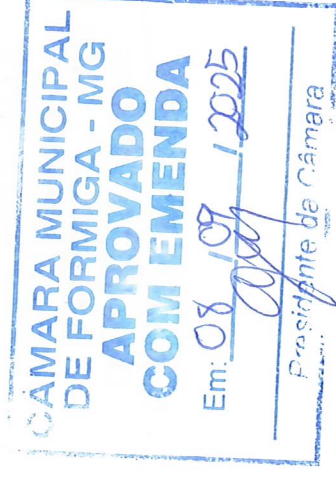 CÂMARA MUNICIPAL
DE FORMIGA - MG
APROVADO
COM EMENDA
Em: 08 / 09 / 2025
Presidente da Câmara